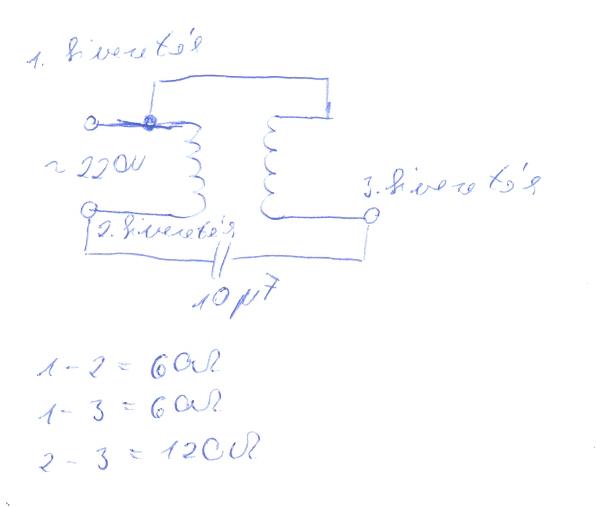 1. kivezetés
~ 220V
3. kivezetés
2. kivezetés
10 µF
1 - 2 = 60Ω
1 - 3 = 60Ω
2 - 3 = 120Ω